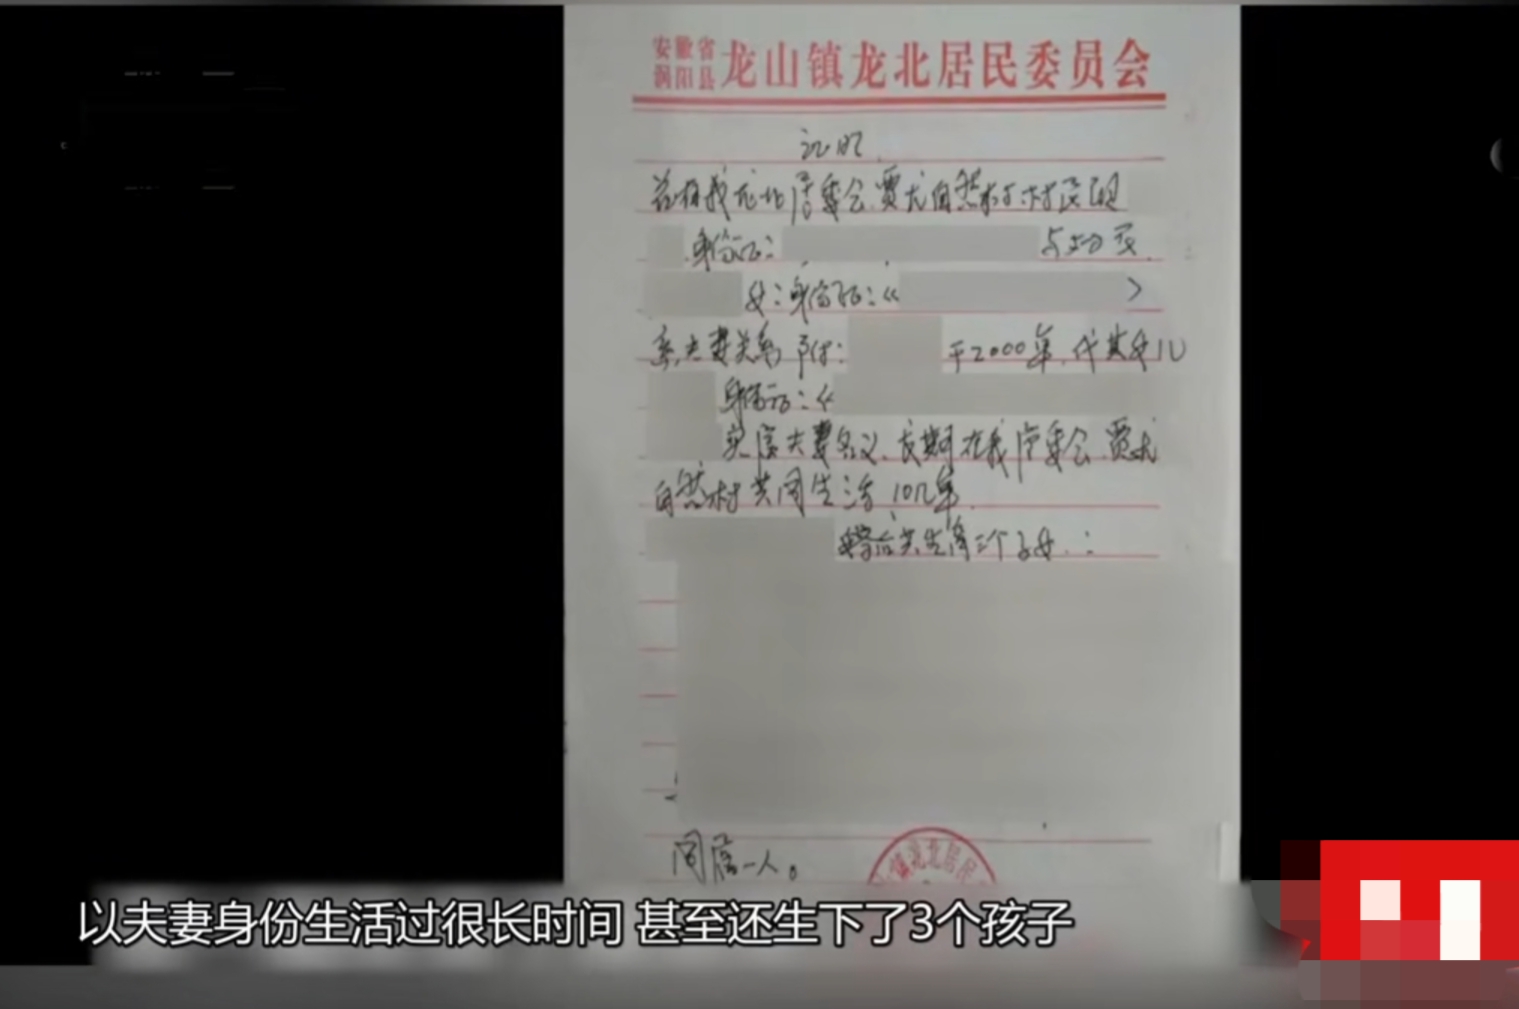 安徽省
涡阳县
龙山镇龙北居民委员会
证明
兹有我龙北居委会贾尤自然村村民
身份证:
女:身份证:«
系夫妻关系 于2000年
身份证:«
夫妻名义.长期在我居委会.贾尤
自然村共同生活10几年.
婚后共生育三个子女.:
同属一人。
镇龙北居民
以夫妻身份生活过很长时间 甚至还生下了3个孩子